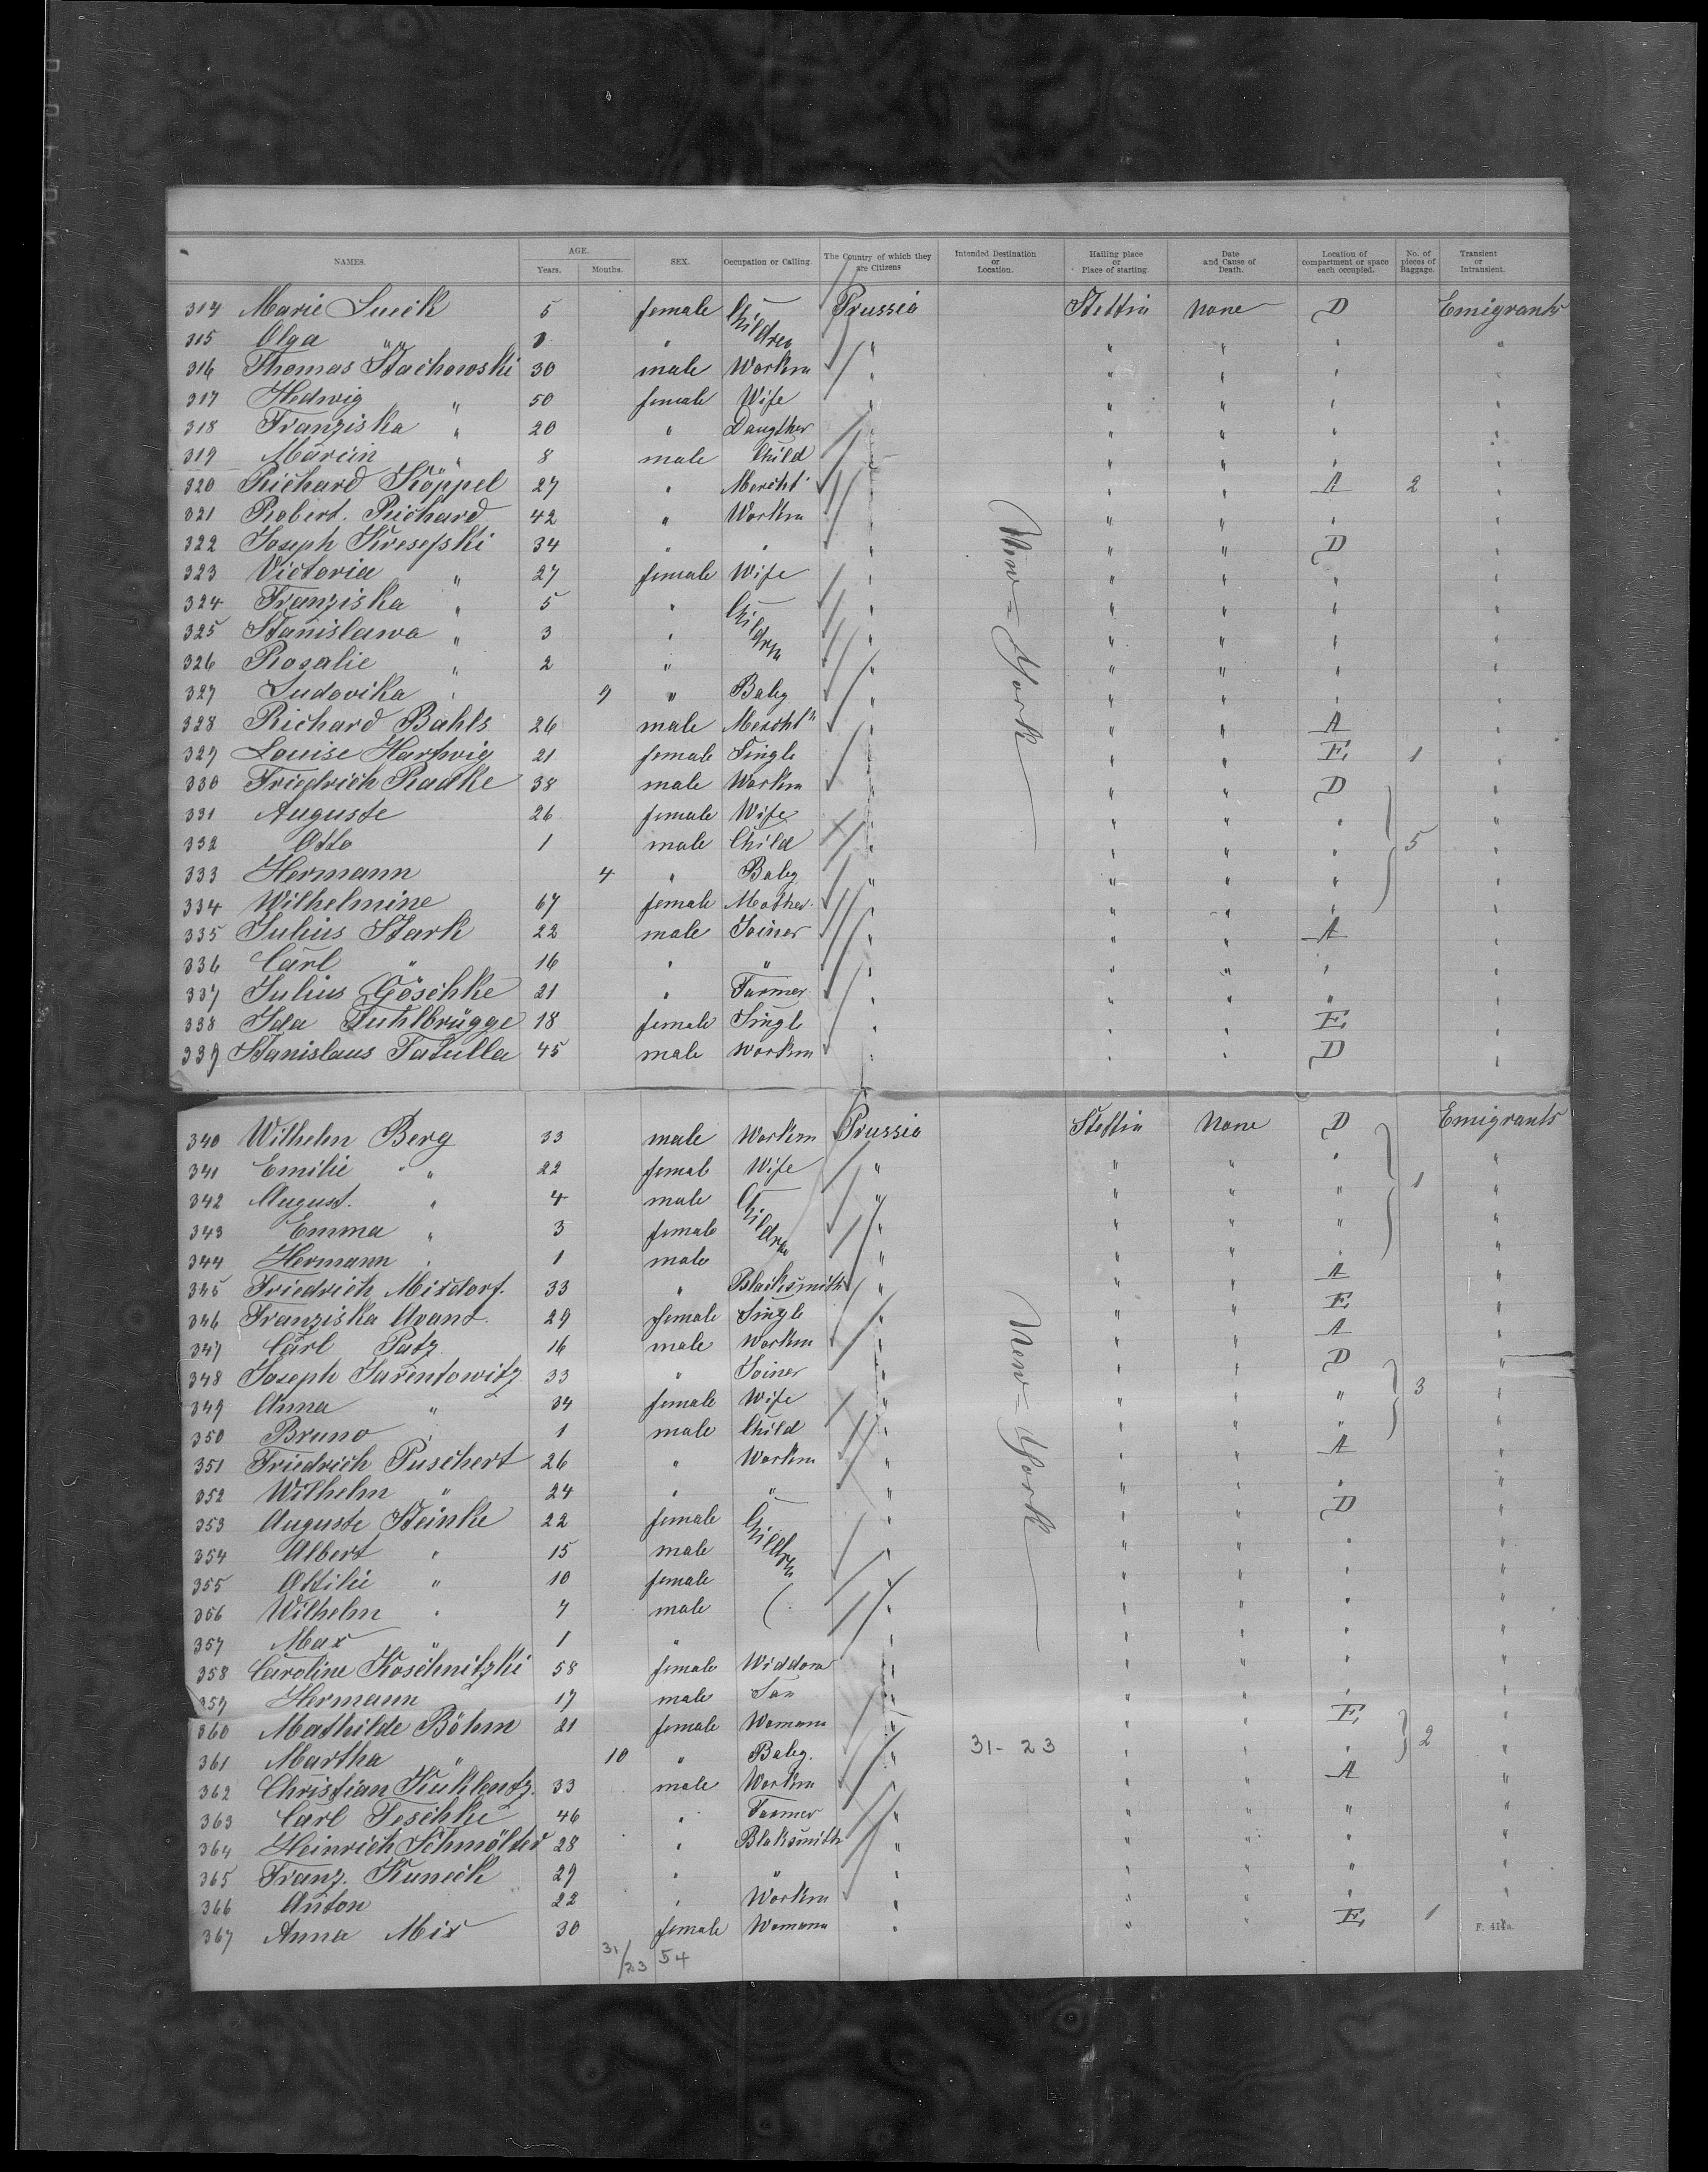 NAMES. AGE. Years. Months. SEX. Occupation or Calling. The Country of which they are Citizens Intended Destination or Location. Hailing place or Place of starting. Date and Cause of Death. Location of compartment or space each occupied. No. of pieces of Baggage. Transient or Intransient.
314 Marie 5 female Children Prussia Stettin None D Emigrants
315 Olga " " " " " " " "
316 Thomas Stachowski 30 male Workm " " " " "
317 Hedwig " 50 female Wife " " " " "
318 Franziska " 20 " Daugther " " " " "
319 Marcin " 8 male Child " " " " "
320 Richard Köppel 27 " Mercht " " " A 2 "
321 Robert. Richard 42 " Workm " " " " "
322 Joseph Kresefski 34 " " " " " D "
323 Victoria " 27 female Wife " " " " "
324 Franziska " 5 " Children " " " " "
325 Stanislawa " 3 " " " " " "
326 Rosalie " 2 " " " " " "
327 Ludovika " 9 " Baby " " " " "
328 Richard Bahls 26 male Mercht " " " A "
329 Louise Hartwig 21 female Single " " " E 1 "
330 Friedrich Radke 38 male Workm " " " D "
331 Auguste 26 female Wife " " " "
332 Otto 1 male Child " " " " 5 "
333 Hermann 4 " Baby " " " " "
334 Wilhelmine 67 female Mother " " " " "
335 Julius Stark 22 male Joiner " " " A "
336 Carl " 16 " " " " " " "
337 Julius Göschke 21 " Farmer " " " " "
338 Ida Fuhlbrügge 18 female Single " " " E "
339 Stanislaus Tatulla 45 male Workm " " " D "
New=York
340 Wilhelm Berg 33 male Workm Prussia Stettin None D Emigrants
341 Emilie " 22 female Wife " " " " "
342 August. " 4 male Children " " " " 1 "
343 Emma " 3 female " " " " "
344 Hermann " 1 male " " " " "
345 Friedrich Misdorf. 33 " Blacksmith " " " A "
346 Franziska Avant. 29 female Single " " " E "
347 Carl Patz 16 male Workm " " " A "
348 Joseph Jarentowitz 33 " Joiner " " " D "
349 Anna " 34 female Wife " " " " 3 "
350 Bruno " 1 male Child " " " " "
351 Friedrich Puschert 26 " Workm " " " A "
352 Wilhelm " 24 " " " " " " "
353 Auguste Steinke 22 female Children " " " D "
354 Albert " 15 male " " " " "
355 Ottilie " 10 female " " " " "
356 Wilhelm " 7 male " " " " "
357 Max 1 " " " " " "
358 Caroline Koschnitzki 58 female Widdow " " " " "
359 Hermann 17 male Son " " " " "
360 Mathilde Böhm 21 female Womann " " " E "
361 Martha " 10 " Baby. " 31-23 " " " 2 "
362 Christian 33 male Workm " " " A "
363 Carl Teschke 46 " Farmer " " " " "
364 Heinrich 28 " Blaksmith " " " " "
365 Franz. Kuneck 29 " " " " " " "
366 Anton 22 " Workm " " " " "
367 Anna Mix 30 female Womann " " " E 1 "
New=York
F. 414a.
31/23 54